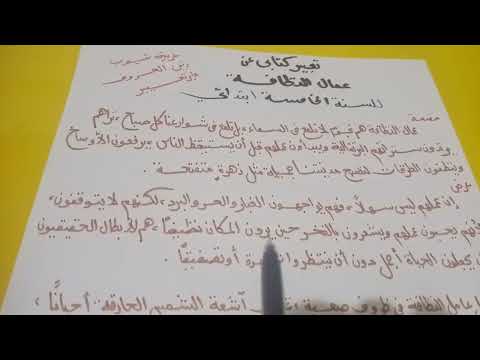 تعبير كتابي عن
عمال النظافة
للسنة الخامسة ابتدائي
طريقة
بين العروض
مقدمة
عمال النظافة هم نجوم لا تلمع في السماء بل تلمع في شوارعنا كل صباح، نراهم
يرتدون سترتهم البرتقالية ويبدأون عملهم قبل أن يستيقظ الناس، يرفعون الأوساخ
وينظفون الطرقات لتصبح مدينتنا جميلة مثل زهرة متفتحة.
عرض
إن عملهم ليس سهلاً، فهم يواجهون الغبار والحر والبرد، لكنهم لا يتوقفون،
يحبون عملهم ويشعرون بالفخر حين يرون المكان نظيفًا، هم الأبطال الحقيقيون
يجعلون الحياة أجمل دون أن ينتظروا أو تصفيقًا.
عامل النظافة في ظروف صعبة، أشعة الشمس الحارقة أحيانًا،